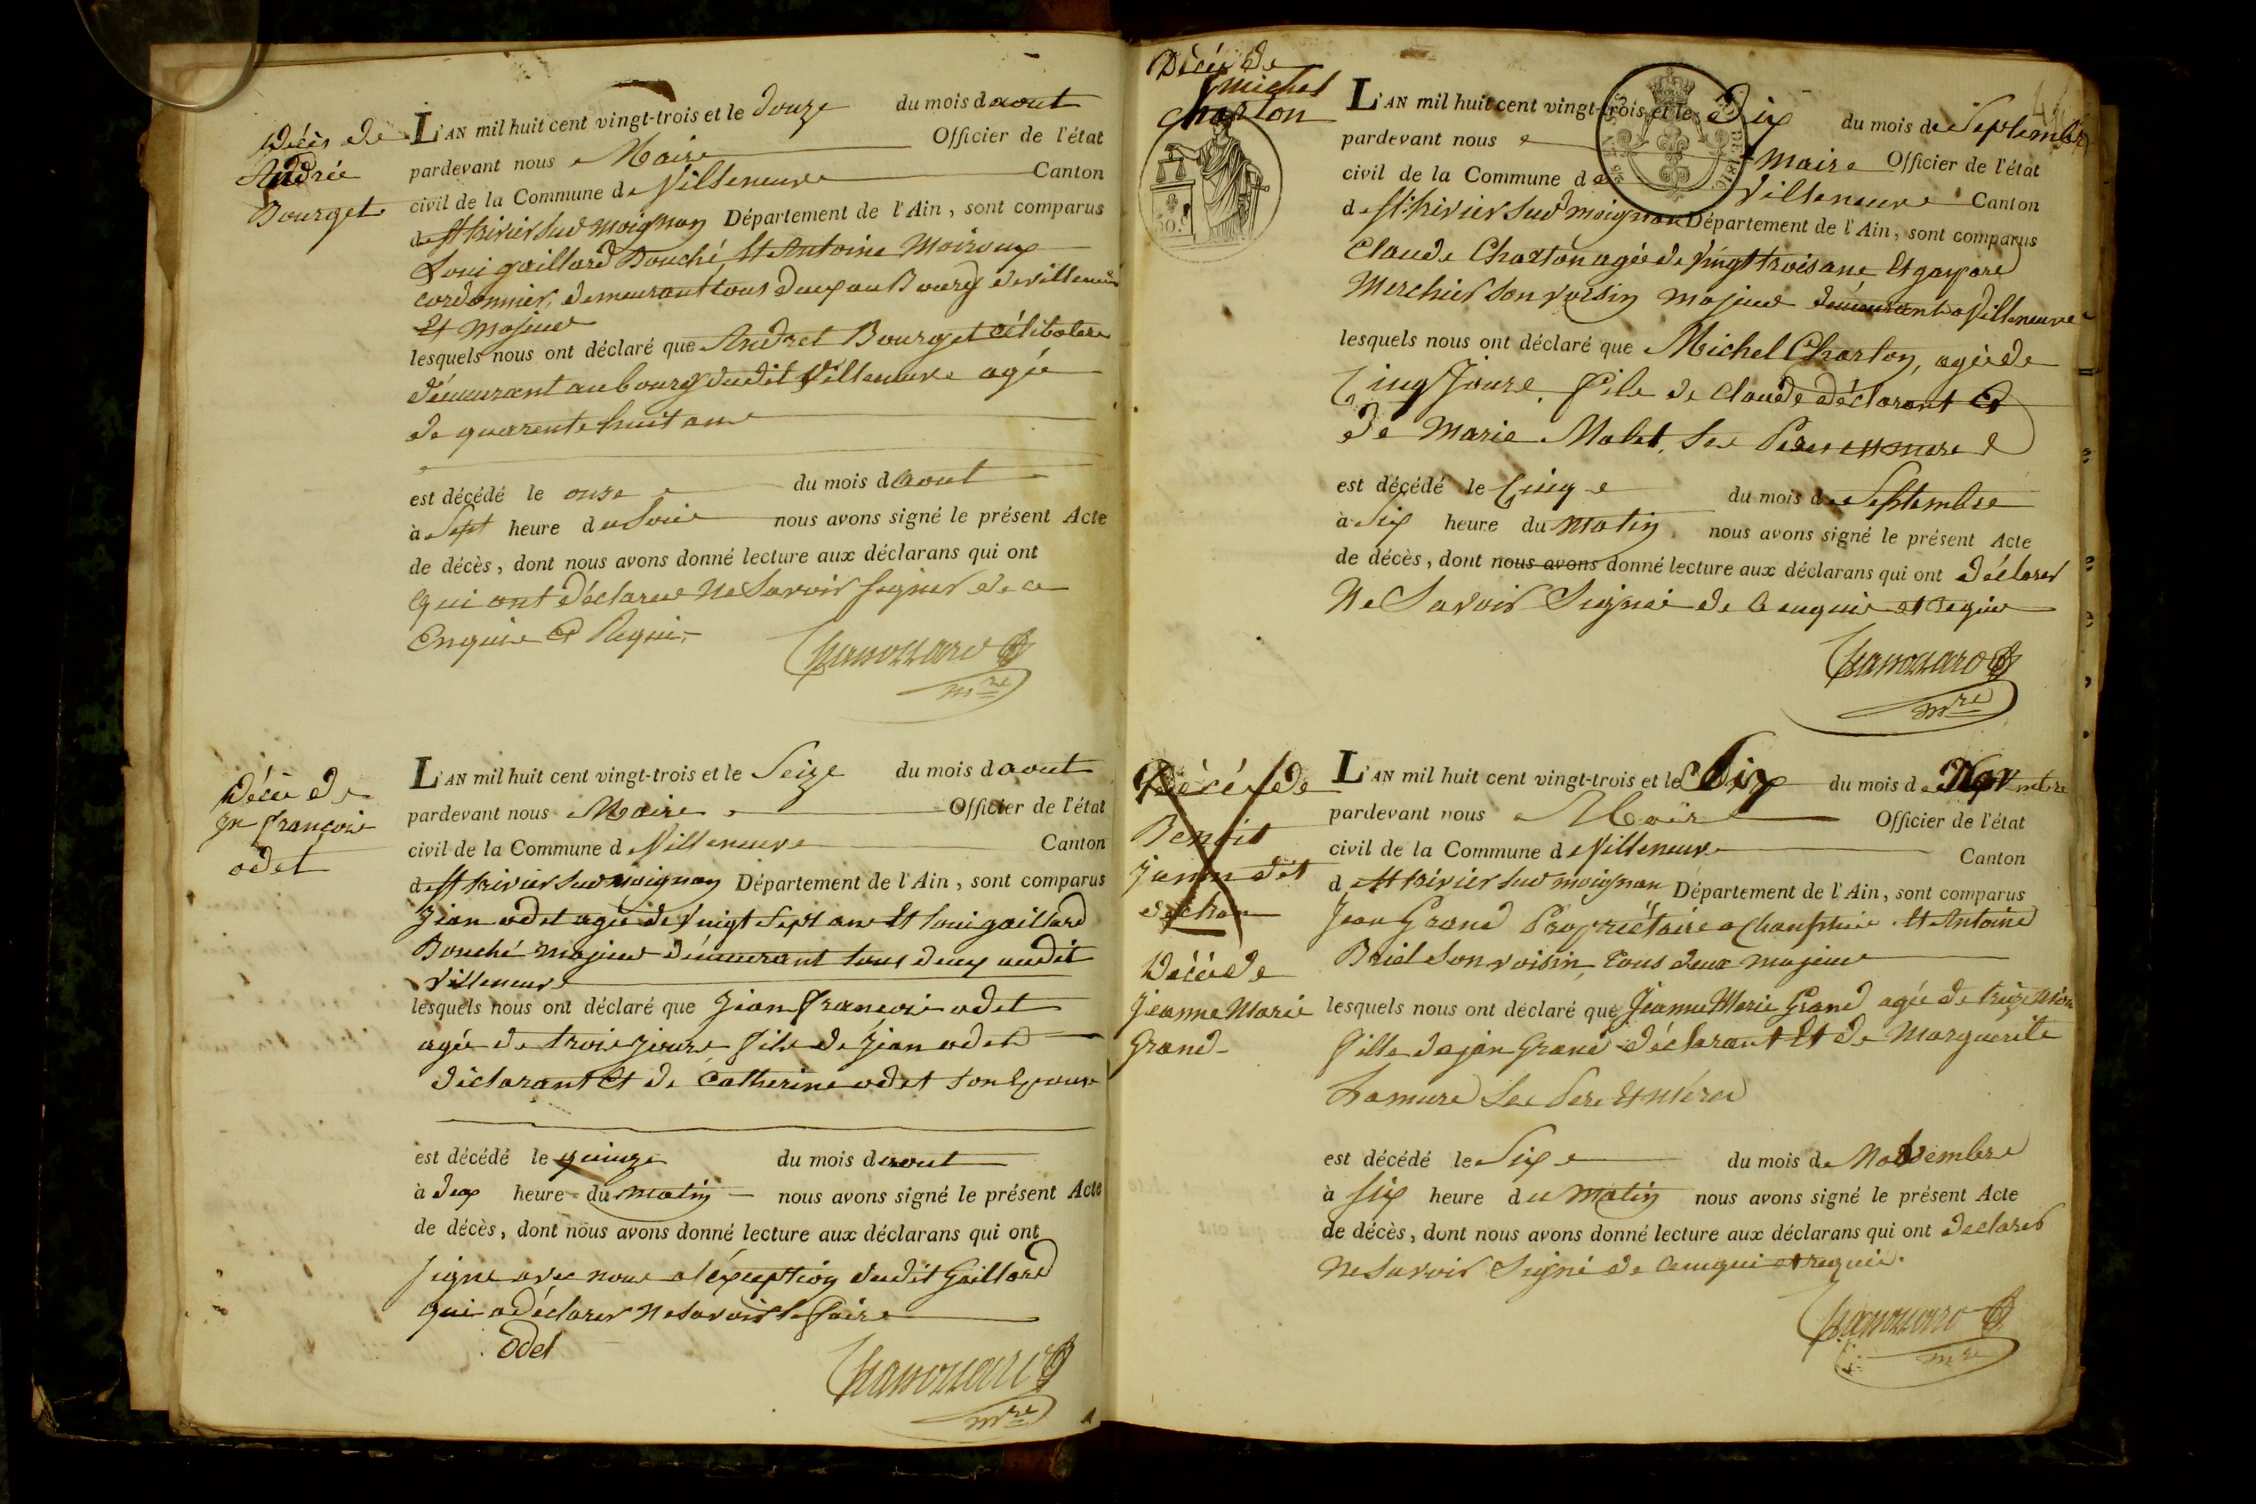 Décès de
Andrée
Bourget
L'AN mil huit cent vingt-trois et le douze du mois daout
pardevant nous Maire Officier de l'état
civil de la Commune de Villeneuve Canton
de St trivier sur moignan Département de l'Ain, sont comparus
Loui gaillard Bouché Et Antoine Moiroux
cordonnier, demeurant tous deux au Bourg de villeneuve
Et majeur
lesquels nous ont déclaré que Andret Bourget célibatere
démeurant au bourg dudit Villeneuve agée
de quarente huit ans
est décédé le onze du mois daout
à Sept heure du Soir nous avons signé le présent Acte
de décès, dont nous avons donné lecture aux déclarans qui ont
qui ont déclaree Ne Savoir signer de ce
Enquie Et Requi
mre
Décè de
Jn françoie
odet
L'AN mil huit cent vingt-trois et le Seize du mois daout
pardevant nous Maire Officier de l'état
civil de la Commune de Villeneuve Canton
de St trivier sur moignan Département de l'Ain, sont comparus
Jean odet agée de vingt Sept ans Et loui gaillard
Bouché majeur démeurant tous deux audit
Villeneuve
lesquels nous ont déclaré que Jean françoie odet
agée de trois jours fils de Jean odet
déclarant Et de Catherine odet son Epouse
est décédé le quinze du mois daout
à deux heure du matin nous avons signé le présent Acte
de décès, dont nous avons donné lecture aux déclarans qui ont
signe avec nous a l'éxeuption dudit Gaillard
qui a déclarer Ne savoir le faire
odet
mre
Décè de
michel
charton
L'AN mil huit cent vingt-trois et le Dix du mois de Septembre
pardevant nous Maire Officier de l'état
civil de la Commune de Villeneuve Canton
de St trivier sur moignan Département de l'Ain, sont comparus
Claude Charton agée de vingt trois ans Et gaspard
Merchier son voisin majeur démeurant a Villeneuve
lesquels nous ont déclaré que Michel Charton, agée de
Cinq Jours, fils de Claude déclarant Et
de Marie Malet, Ses Peres et mere
est décédé le Cinq du mois de Septembre
à Six heure du matin nous avons signé le présent Acte
de décès, dont nous avons donné lecture aux déclarans qui ont déclarer
Ne Savoir Signée de Cenquie et requie
mre
Décé de
Benoit
Décè de
Jeanne Marie
Grand
L'AN mil huit cent vingt-trois et le Six du mois de Novembre
pardevant nous Maire Officier de l'état
civil de la Commune de Villeneuve Canton
de St trivier sur moignan Département de l'Ain, sont comparus
Jean Grand Propriétaire a Et Antoine
Briel Son voisin, tous deux majeur
lesquels nous ont déclaré que Jeanne Marie Grand agée de treize
fille de jean Grand déclarant Et de Marguerite
Lamure Ses Pere Et Mére
est décédé le Six du mois de Novembre
à Six heure du Matin nous avons signé le présent Acte
de décès, dont nous avons donné lecture aux déclarans qui ont declarer
Ne Savoir Signé de Cenqui et requie.
mre